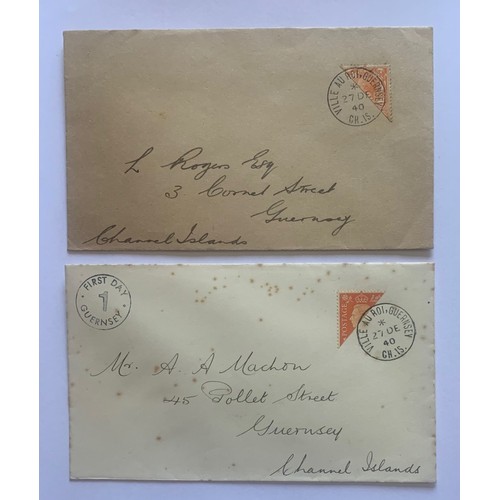 VILLE AU ROI·GUERNSEY
*
27 DE
40
CH.IS.
L Rogers Esq
3 Cornet Street
Guernsey
Channel Islands
FIRST DAY
1
GUERNSEY
POSTAGE
VILLE AU ROI·GUERNSEY
*
27 DE
40
CH.IS.
Mr. A A Machon
45 Pollet Street
Guernsey
Channel Islands